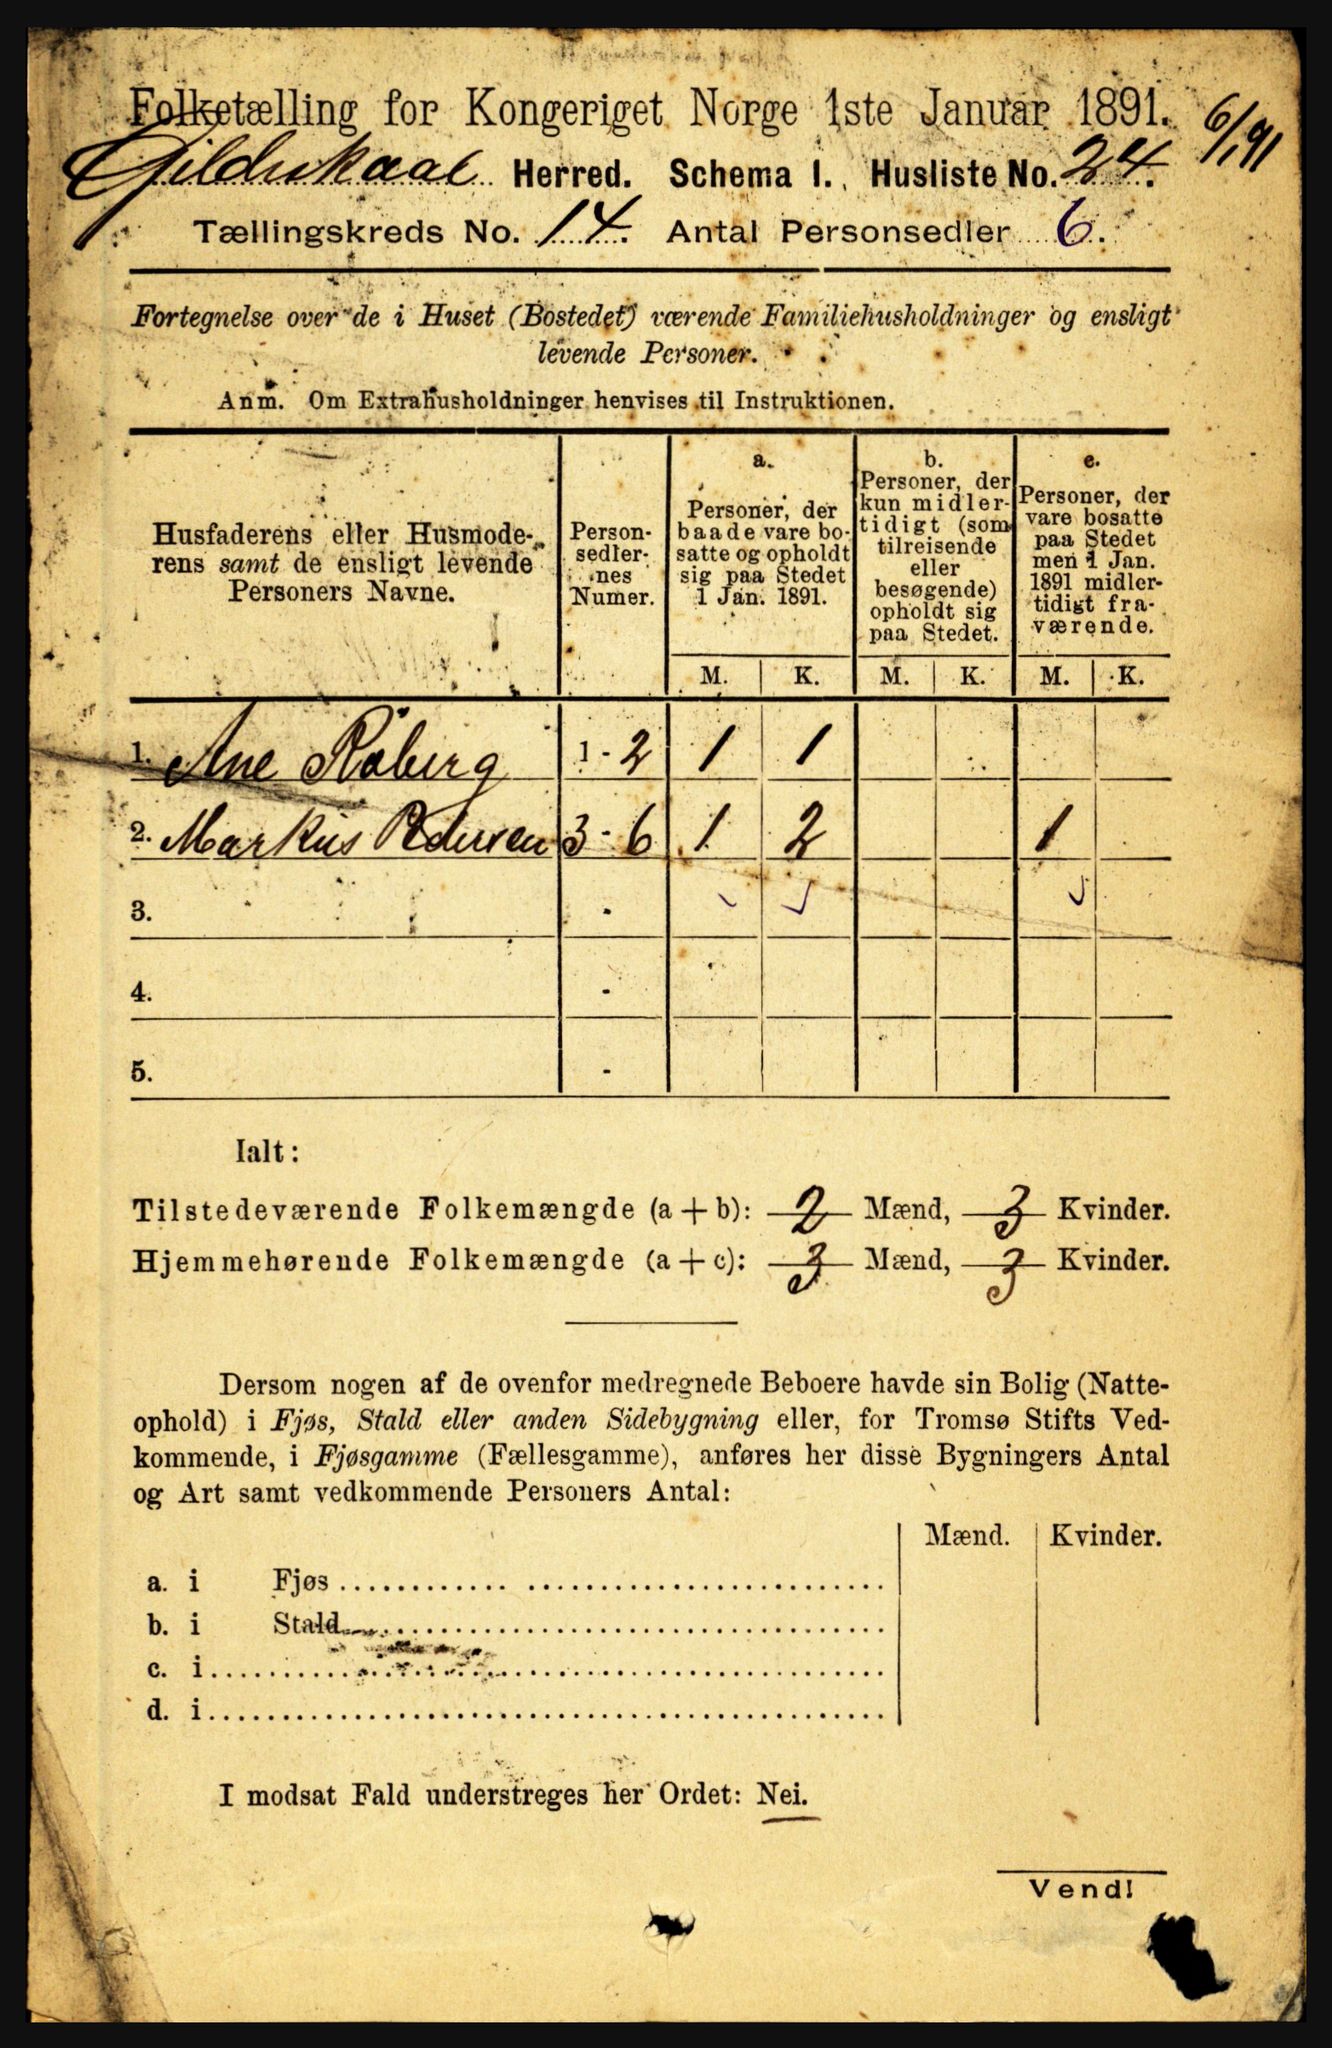 Folketælling for Kongeriget Norge 1ste Januar 1891.
6/1 91
Gildeskaal Herred. Schema 1. Husliste No. 24.
Tællingskreds No. 14. Antal Personsedler 6.
Fortegnelse over de i Huset (Bostedet) værende Familiehusholdninger og ensligt
levende Personer.
Anm. Om Extrahusholdninger henvises til Instruktionen.
Husfaderens eller Husmode-
rens samt de ensligt levende
Personers Navne.
Person-
sedler-
nes
Numer.
a.
Personer, der
baade vare bo-
satte og opholdt
sig paa Stedet
1 Jan. 1891.
b.
Personer, der
kun midler-
tidigt (som
tilreisende
eller
besøgende)
opholdt sig
paa Stedet.
c.
Personer, der
vare bosatte
paa Stedet
men 1 Jan.
1891 midler-
tidigt fra-
værende.
M. K. M. K. M. K.
1. Ane Råberg 1 - 2 1 1
2. Markus Pedersen 3 - 6 1 2 1
3. -
4. -
5. -
Ialt:
Tilstedeværende Folkemængde (a + b): 2 Mænd, 3 Kvinder.
Hjemmehørende Folkemængde (a + c): 3 Mænd, 3 Kvinder.
Dersom nogen af de ovenfor medregnede Beboere havde sin Bolig (Natte-
ophold) i Fjøs, Stald eller anden Sidebygning eller, for Tromsø Stifts Ved-
kommende, i Fjøsgamme (Fællesgamme), anføres her disse Bygningers Antal
og Art samt vedkommende Personers Antal:
Mænd. Kvinder.
a. i Fjøs
b. i Stald
c. i
d. i
I modsat Fald understreges her Ordet: Nei.
Vend!